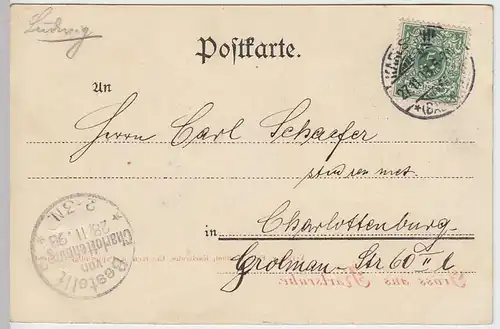 Ludwig
Postkarte.
An
Herrn Carl Schaefer
stud. rer. met.
in Charlottenburg
Grolman-Str 60 II l
Gruss aus Karlsruhe.
Bestellt
von
Charlottenburg
28.11.98
2-3N.
KARLS
27.11
(BA